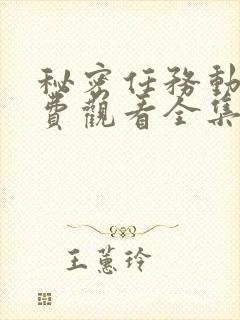 秘密任務動
費觀看全集
王蕙玲